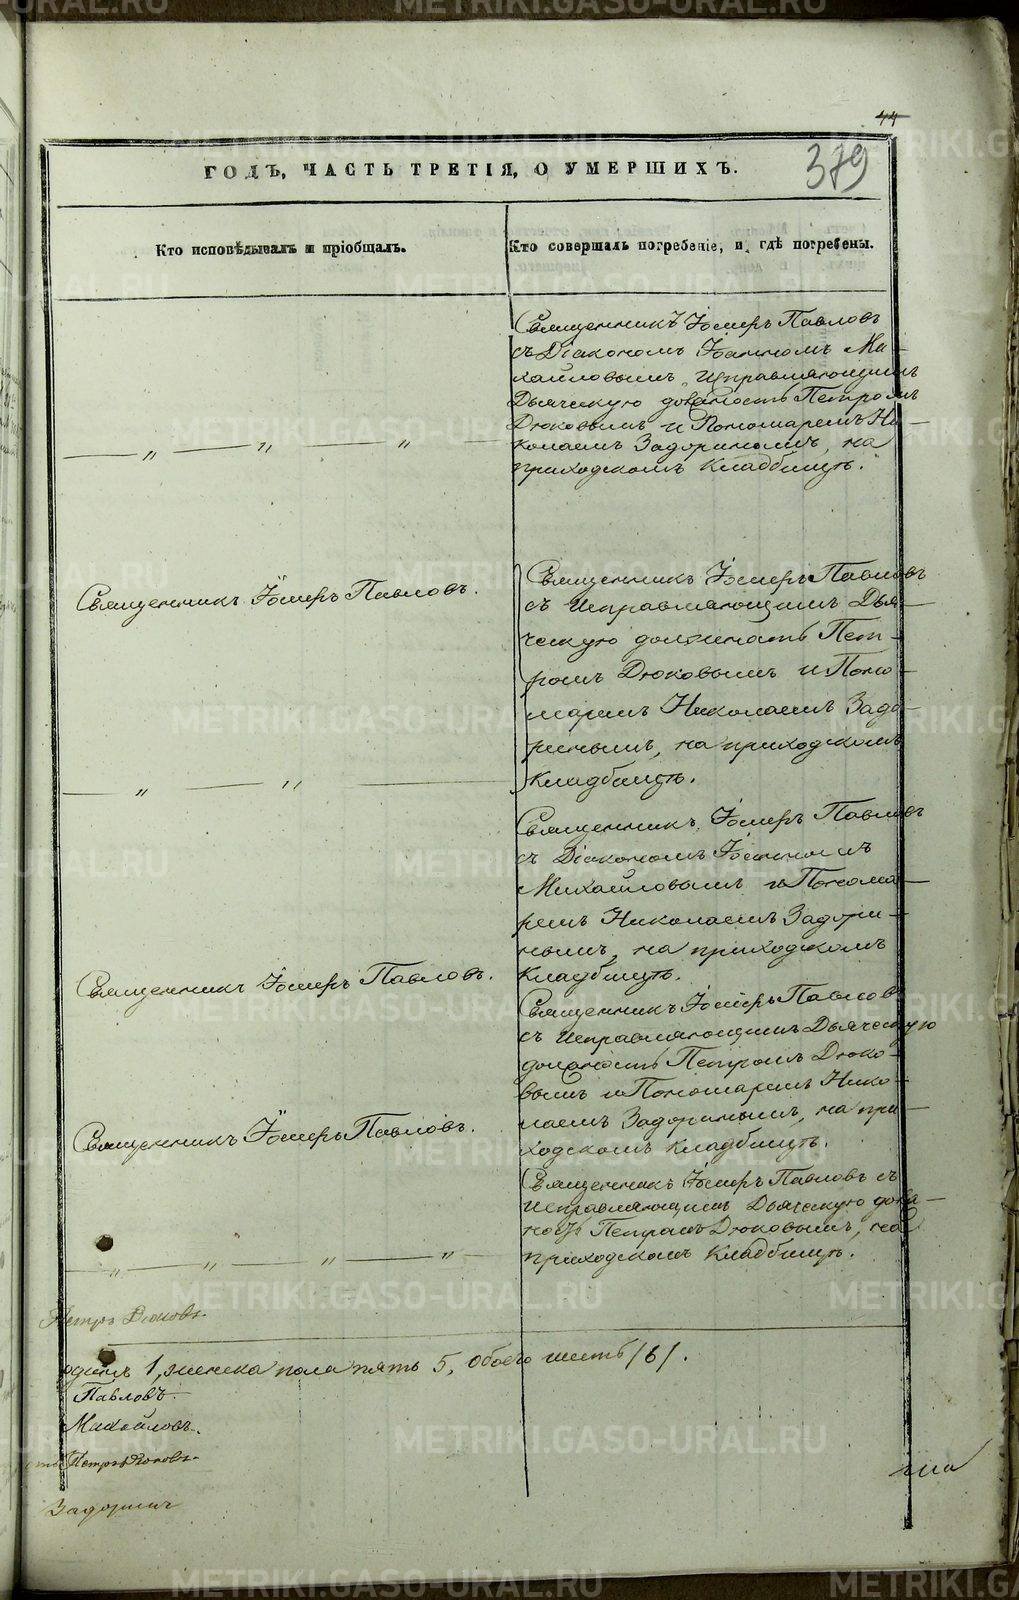 44
ГОДЪ, ЧАСТЬ ТРЕТІЯ, О УМЕРШИХЪ.
379
Кто исповѣдывалъ и пріобщалъ.
Кто совершалъ погребеніе, и гдѣ погребены.
Священникъ Іосифъ Павловъ
съ Діакономъ Іоанномъ Ми-
хайловымъ, Исправляющимъ
Дьяческую должность Петромъ
Дюковымъ и Пономаремъ Ни-
колаемъ Задоринымъ, на
приходскомъ кладбищѣ.
— „ — „ — „ —
Священникъ Іосифъ Павловъ.
Священникъ Іосифъ Павловъ
съ Исправляющимъ Дья-
ческую должность Пет-
ромъ Дюковымъ и Поно-
маремъ Николаемъ Задо-
ринымъ, на приходскомъ
кладбищѣ.
— „ — „ —
Священникъ Іосифъ Павловъ
съ Діакономъ Іоанномъ
Михайловымъ и Понома-
ремъ Николаемъ Задори-
нымъ, на приходскомъ
кладбищѣ.
Священникъ Іосифъ Павловъ.
Священникъ Іосифъ Павловъ
съ Исправляющимъ Дьяческую
должность Петромъ Дюко-
вымъ и Пономаремъ Нико-
лаемъ Задоринымъ, на при-
ходскомъ кладбищѣ.
Священникъ Іосифъ Павловъ.
Священникъ Іосифъ Павловъ съ
Исправляющимъ Дьяческую долж-
ность Петромъ Дюковымъ, на
приходскомъ кладбищѣ.
— „ — „ — „ — „ —
Петръ Дюковъ
одинъ 1, женска пола пять 5, обоего шесть /6/.
Павловъ.
Михайловъ.
Петръ Дюковъ
Задоринъ
METRIKI.GASO-URAL.RU